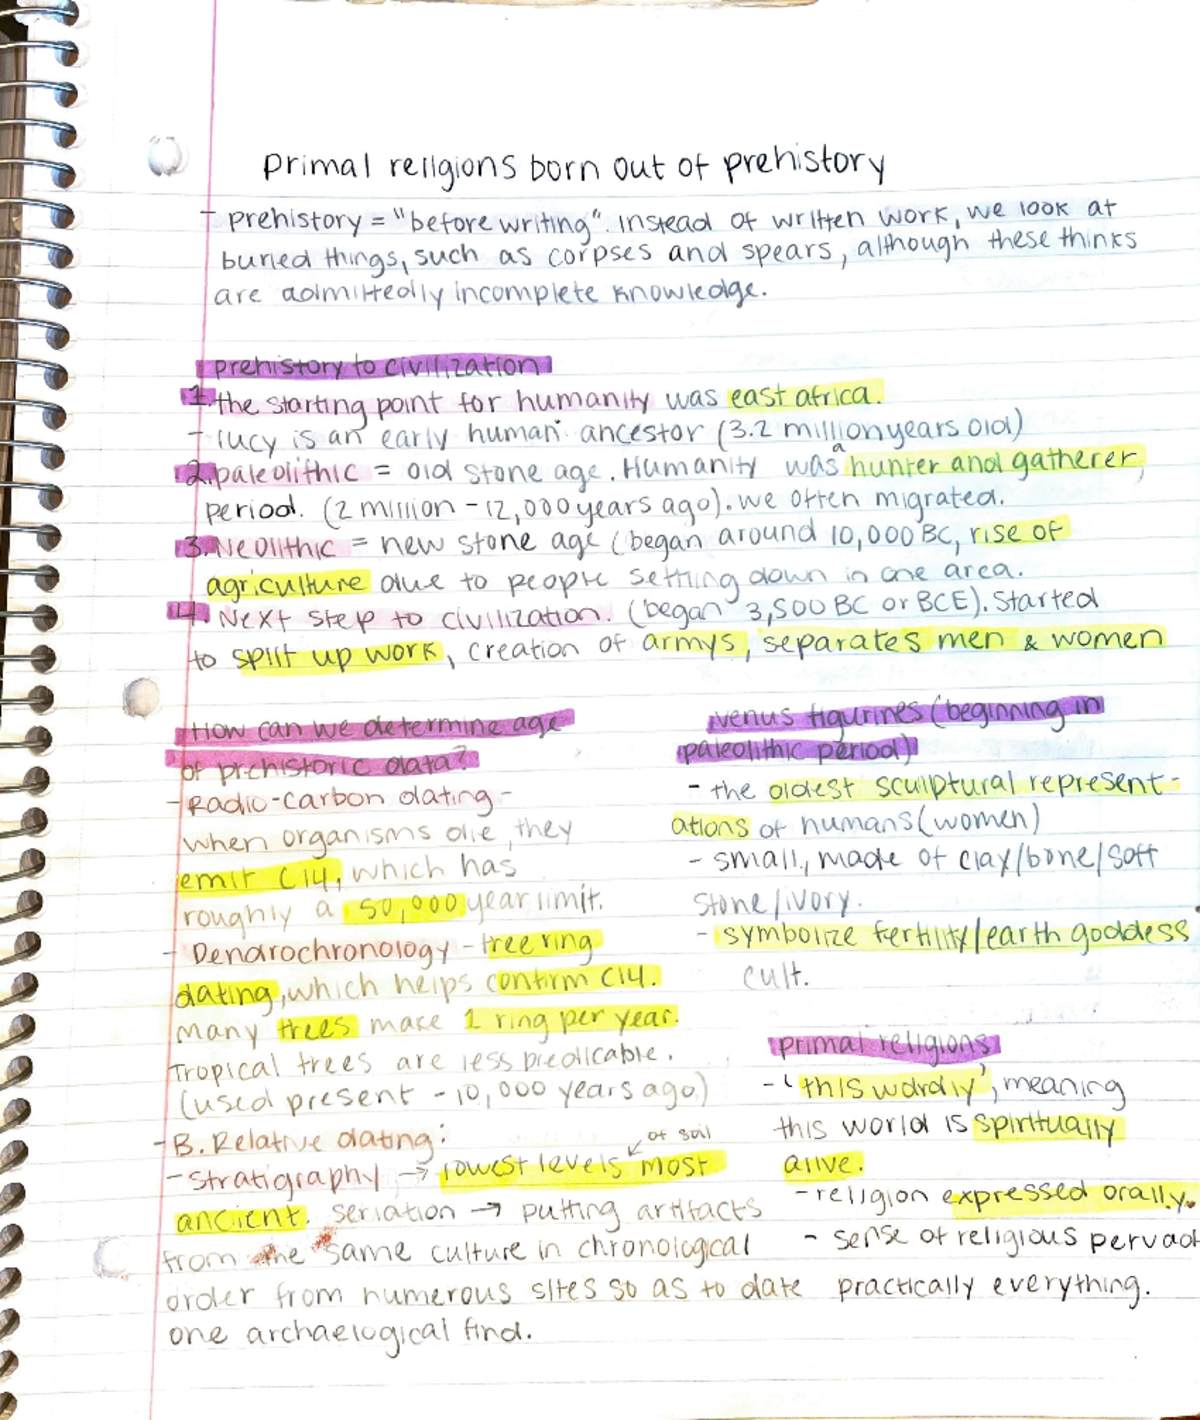 Primal religions born out of prehistory
- prehistory = "before writing". Instead of written work, we look at
buried things, such as corpses and spears, although these thinks
are admittedly incomplete knowledge.
prehistory to civilization
1. the starting point for humanity was east africa.
- lucy is an early human ancestor (3.2 million years old)
2. paleolithic = old stone age. Humanity was a hunter and gatherer,
period. (2 million - 12,000 years ago). we often migrated.
3. Neolithic = new stone age (began around 10,000 BC, rise of
agriculture due to people settling down in one area.
4. Next step to civilization. (began 3,500 BC or BCE). Started
to split up work, creation of armys, separates men & women
How can we determine age
of prehistoric data?
- Radio-carbon dating -
when organisms die, they
emit C14, which has
roughly a 50,000 year limit.
- Dendrochronology - tree ring
dating, which helps confirm C14.
many trees make 1 ring per year.
Tropical trees are less predicable.
(used present - 10,000 years ago)
- B. Relative dating:
- stratigraphy → lowest levels of soil most
ancient. seriation → putting artifacts
from the same culture in chronological
order from numerous sites so as to date
one archaelogical find.
venus figurines (beginning in
paleolithic period)
- the oldest sculptural represent-
ations of humans (women)
- small, made of clay/bone/soft
stone/ivory.
- symbolize fertility/earth goddess
cult.
primal religions
- 'this wordly', meaning
this world is spiritually
alive.
- religion expressed orally.
- sense of religious pervad
practically everything.